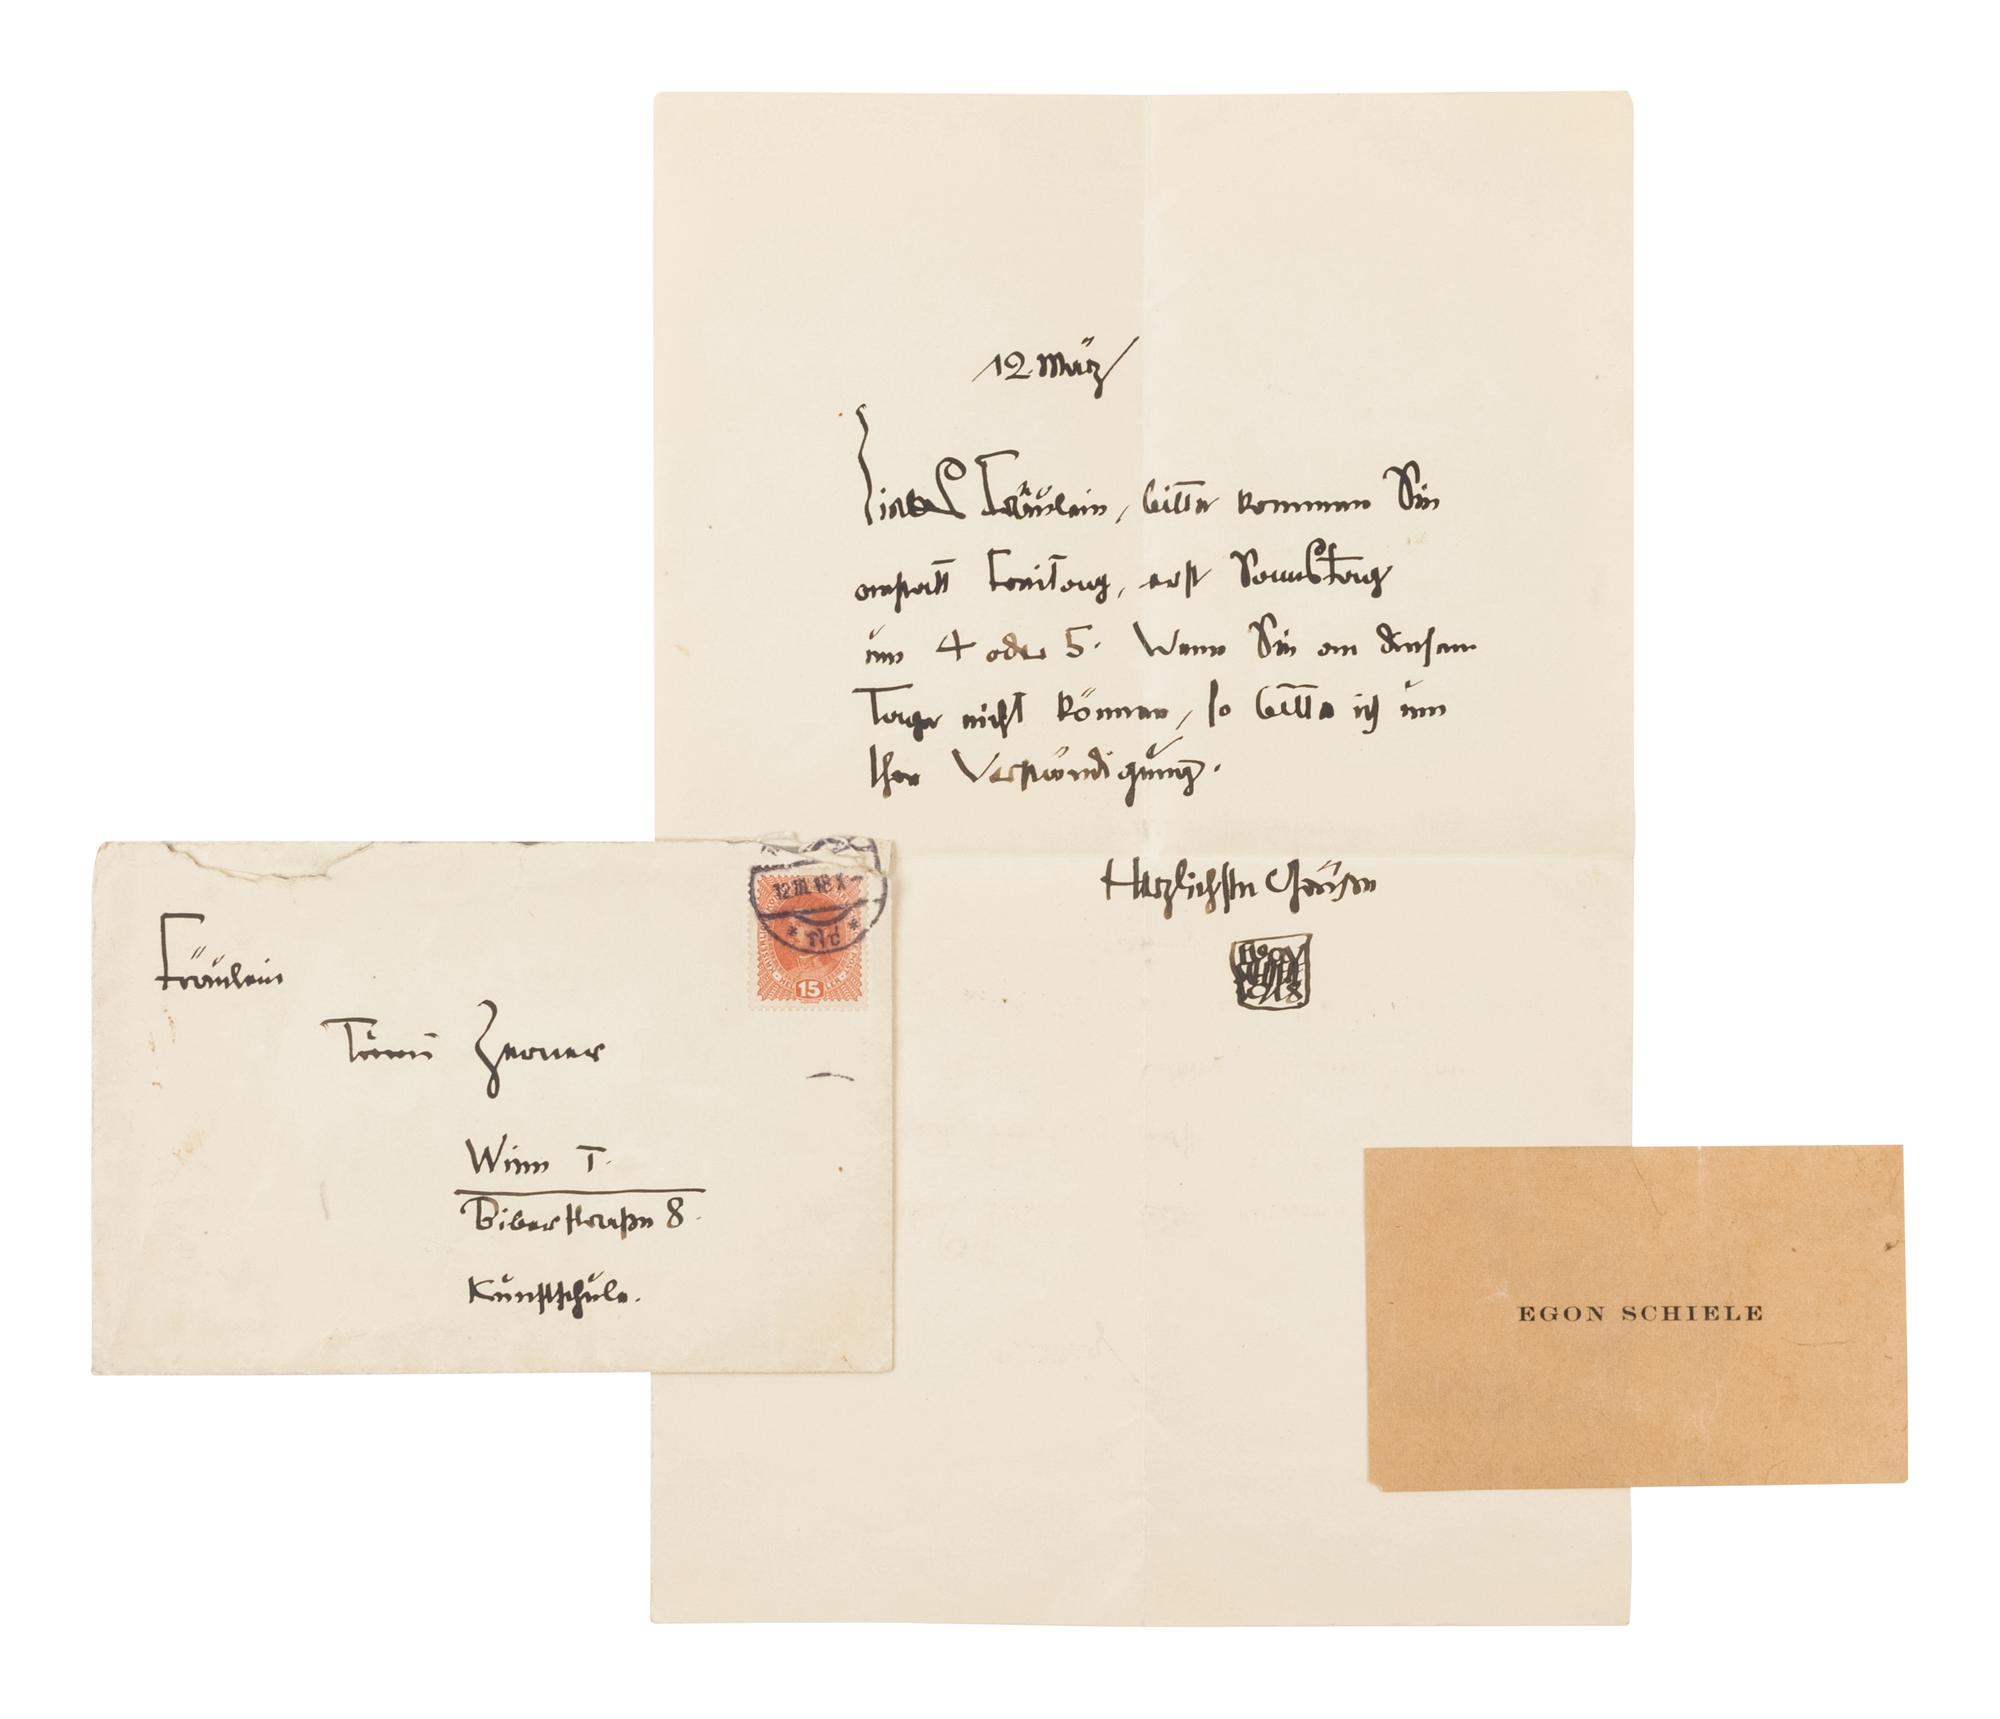 12. März
Liebes Fräulein, bitte kommen Sie
anstatt Freitag, erst Samstag
um 4 oder 5. Wenn Sie an diesem
Tage nicht können, so bitte ich um
Ihre Verständigung.
Herzlichste Grüße
EGON
SCHIELE
1918
12 III 18
15
Fräulein
Zerner
Wien I.
Biberstraße 8.
Kunstschule.
EGON SCHIELE